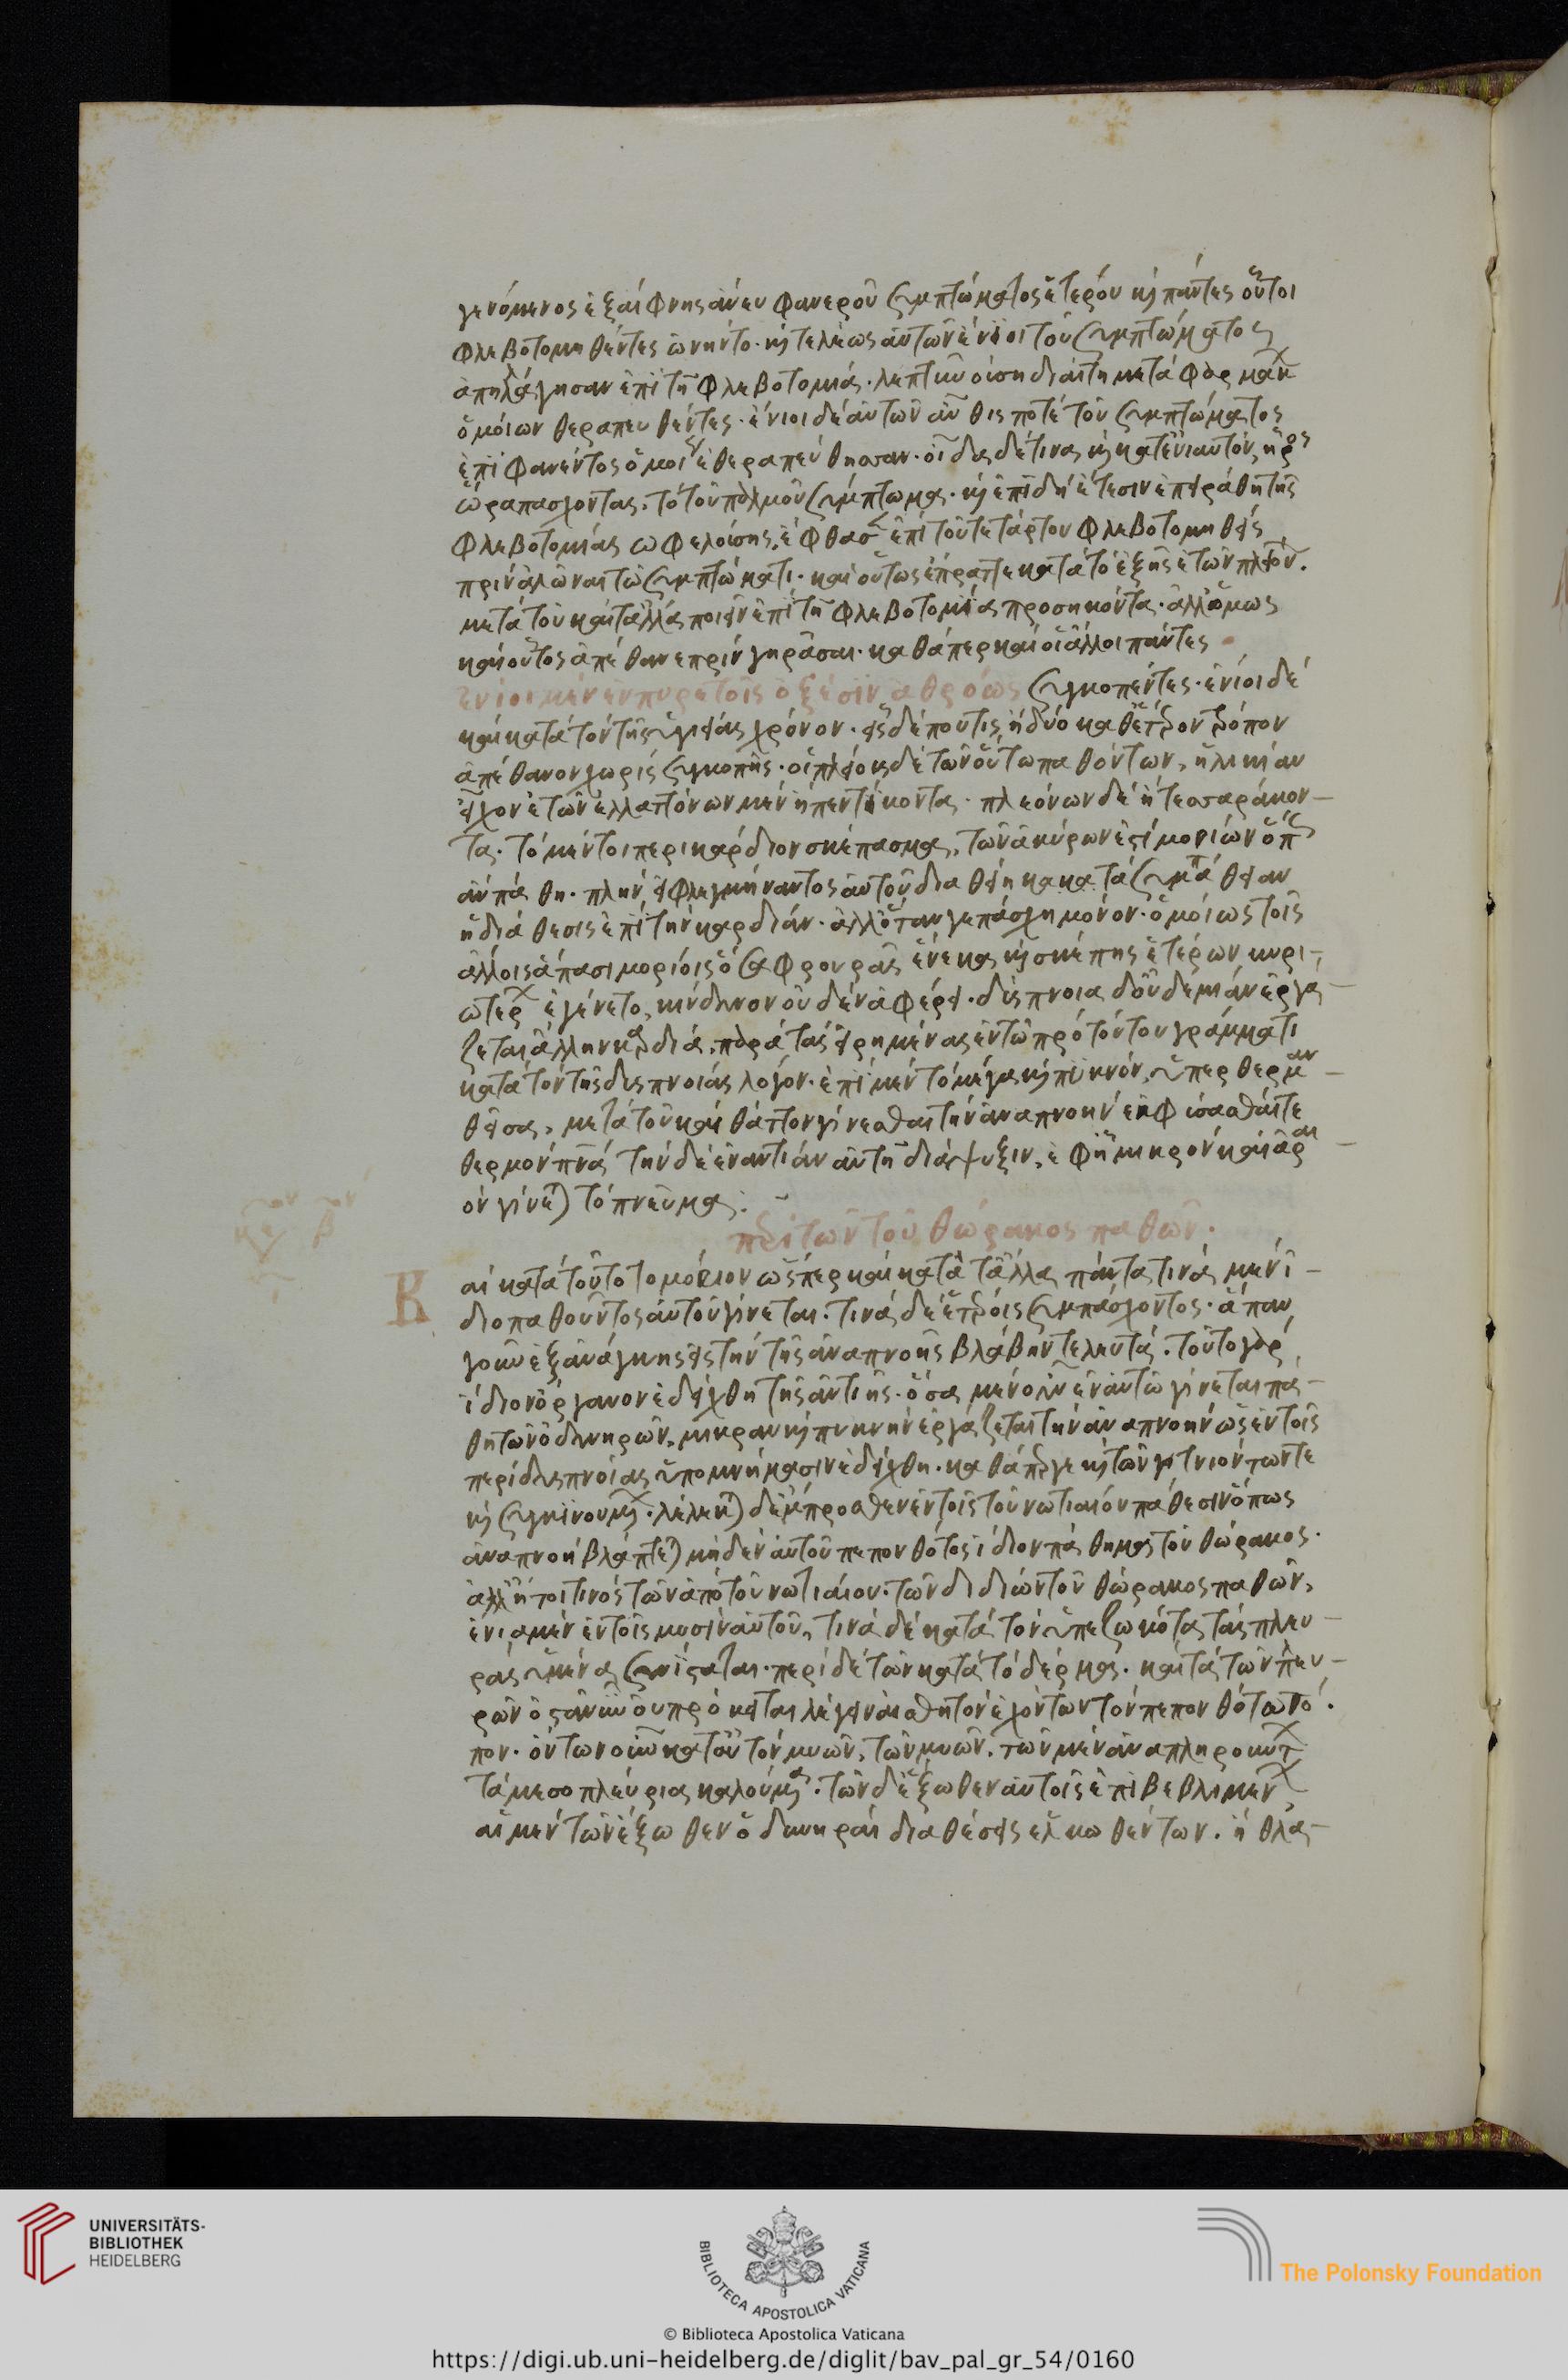 γενόμενος ἐξαίφνης ἄνευ φανεροῦ συμπτώματος ἑτέρου κὶ πάντες οὗτοι
φλεβοτομηθέντες ὤνηντο· κὶ τελέως αὐτῶν ἔνιοι τοῦ συμπτώματος
ἀπηλλάγησαν ἐπὶ τῇ φλεβοτομίᾳ. λεπτυνούσῃ διαίτῃ μετὰ φαρμάκ
ὁμοίων θεραπευθέντες· ἔνιοι δὲ αὐτῶν αὖθίς ποτε τοῦ συμπτώματος
ἐπιφανέντος ὁμοί ἐθεραπεύθησαν. οἶδα δέ τινας κὶ κατ' ἐνιαυτὸν ἦρος
ὥρα πάσχοντας. τὸ τοῦ παλμοῦ σύμπτωμα· κὶ ἐπειδὴ ἔτεσιν ἐπειράθη τῆς
φλεβοτομίας ὠφελούσης, ἔφθασ ἐπὶ τοῦ τετάρτου φλεβοτομηθεὶς
πρὶν ἁλῶναι τῷ συμπτώματι· καὶ οὕτως ἔπραττε κατὰ τὸ ἑξῆς ἐτῶν πλειόν.
μετὰ τοῦ καὶ τἄλλα ποιεῖν ἐπὶ τῇ φλεβοτομίᾳ προσηκόντα· ἀλλ' ὅμως
καὶ οὗτος ἀπέθανε πρὶν γηρᾶσαι· καθάπερ καὶ οἱ ἄλλοι πάντες
ἔνιοι μὲν ἐν πυρετοῖς ὀξέσιν ἀθρόως συγκοπέντες· ἔνιοι δὲ
καὶ κατὰ τὸν τῆς ὑγιείας χρόνον· εἷς δέ που τις ἢ δύο καθ' ἕτερον τρόπον
ἀπέθανον χωρὶς συγκοπῆς· οἱ πλείους δὲ τῶν οὕτω παθόντων, ἡλικίαν
εἶχον ἐτῶν ἐλαττόνων μὲν ἢ πεντήκοντα· πλεόνων δὲ ἢ τεσσαράκον-
τα. τὸ μέντοι περικάρδιον σκέπασμα, τῶν ἀκύρων ἐστὶ μορίων ὅπ
ἂν πάθῃ. πλὴν εἰ φλεγμήναντος αὐτοῦ διαθείη κακατὰ συμπάθειαν
ἡ διάθεσις ἐπὶ τὴν καρδίαν· ἀλλ' ὅταν γε πάσχῃ μόνον· ὁμοίως τοῖς
ἄλλοις ἅπασι μορίοις ὅσα φρουρᾶς ἕνεκα κὶ σκέπης ἑτέρων κυρι-
ωτέρ ἐγένετο, κίνδυνον οὐδένα φέρει. δύσπνοια δ' οὐδεμίαν ἐργά-
ζεται ἄλλην καρδία, παρὰ τὰς εἰρημένας ἐν τῷ πρὸ τούτου γράμματι
κατὰ τὸν τῆς δυσπνοίας λόγον· ἐπὶ μὲν τὸ μέγα κὶ πυκνόν, ὑπερθερμαν-
θεῖσα, μετὰ τοῦ καὶ θᾶττον γίνεσθαι τὴν ἀναπνοὴν ἐκφυσᾶσθαί τε
θερμὸν πνα τὴν δὲ ἐναντίαν αὐτῇ διάψυξιν, ἐφ' ᾗ μικρὸν καὶ ἀραι-
ὸν γίνετ τὸ πνεῦμα:
περὶ τῶν τοῦ θώρακος παθῶν.
Καὶ κατὰ τοῦτο τὸ μόριον ὥσπερ καὶ κατὰ τἄλλα πάντα τινὰ μὲν ἰ-
διοπαθοῦντος αὐτοῦ γίνεται. τινὰ δὲ ἑτέροις συμπάσχοντος· ἅπαν
γοῦν ἐξ ἀνάγκης εἰς τὴν τῆς ἀναπνοῆς βλάβην τελευτᾷ. τοῦτο γὰρ
ἴδιον ὄργανον ἐδείχθη τῆς ἀντιῆς. ὅσα μὲν οὖν ἐν αὐτῷ γίνεται πα-
θη τῶν ὀδυνηρῶν, μικρὰν κὶ πυκνὴν ἐργάζεται τὴν ἀναπνοὴν ὡς ἐν τοῖς
περὶ δυσπνοίας ὑπομνήμασιν ἐδείχθη· καθάπερ γε κὶ τῶν γειτνιόντων τε
κὶ συγκινουμ. λέλεκτ δὲ κἄμπροσθεν ἐν τοῖς τοῦ νωτιαίου πάθεσιν ὅπως
ἀναπνοὴ βλάπτετ μηδὲν αὐτοῦ πεπονθότος ἴδιον πάθημα τοῦ θώρακος.
ἀλλ' ἤτοι τινὸς τῶν ἀπὸ τοῦ νωτιαίου. τῶν δ' ἰδίων τοῦ θώρακος παθῶν,
ἔνια μὲν ἐν τοῖς μυσὶν αὐτοῦ, τινὰ δὲ κατὰ τὸν ὑπεζωκότα τὰς πλευ-
ρὰς ὑμένα συνίσταται. περὶ δὲ τῶν κατὰ τὸ δέρμα. καὶ τὰ τῶν πλευ-
ρῶν ὀστᾶ νῦν οὐ πρόκειται λέγειν αἰσθητὸν ἐχόντων τὸν πεπονθότα τό-
πον. ὄντων οὖν κατ' αὐτὸν μυῶν, τῶν μυῶν. τῶν μὲν ἀναπληρούντ
τὰ μεσοπλεύρια καλούμα. τῶν δ' ἔξωθεν αὐτοῖς ἐπιβεβλημέν
αἱ μὲν τῶν ἔξωθεν ὀδυνηραὶ διαθέσεις ἑλκωθέντων. ἢ θλα-
UNIVERSITÄTS-
BIBLIOTHEK
HEIDELBERG
BIBLIOTECA APOSTOLICA VATICANA
The Polonsky Foundation
© Biblioteca Apostolica Vaticana
https://digi.ub.uni-heidelberg.de/diglit/bav_pal_gr_54/0160